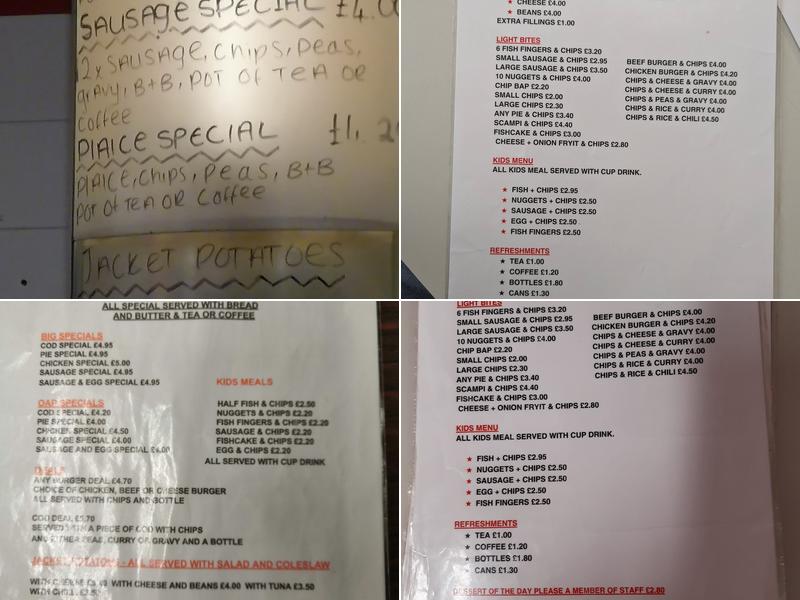 SAUSAGE SPECIAL £4.00
2x SAUSAGE, Chips, Peas,
gravy, B+B, POT OF TEA OR
Coffee
PlAICE SPECIAL
PlAICE, Chips, Peas, B+B
POT Of TEA OR Coffee
JACKET POTATOES
★ CHEESE £4.00
★ BEANS £4.00
EXTRA FILLINGS £1.00
LIGHT BITES
6 FISH FINGERS & CHIPS £3.20
SMALL SAUSAGE & CHIPS £2.95
LARGE SAUSAGE & CHIPS £3.50
10 NUGGETS & CHIPS £4.00
CHIP BAP £2.20
SMALL CHIPS £2.00
LARGE CHIPS £2.30
ANY PIE & CHIPS £3.40
SCAMPI & CHIPS £4.40
FISHCAKE & CHIPS £3.00
CHEESE + ONION FRYIT & CHIPS £2.80
BEEF BURGER & CHIPS £4.00
CHICKEN BURGER & CHIPS £4.20
CHIPS & CHEESE & GRAVY £4.00
CHIPS & CHEESE & CURRY £4.00
CHIPS & PEAS & GRAVY £4.00
CHIPS & RICE & CURRY £4.00
CHIPS & RICE & CHILI £4.50
KIDS MENU
ALL KIDS MEAL SERVED WITH CUP DRINK.
★ FISH + CHIPS £2.95
★ NUGGETS + CHIPS £2.50
★ SAUSAGE + CHIPS £2.50
★ EGG + CHIPS £2.50
★ FISH FINGERS £2.50
REFRESHMENTS
★ TEA £1.00
★ COFFEE £1.20
★ BOTTLES £1.80
★ CANS £1.30
ALL SPECIAL SERVED WITH BREAD
AND BUTTER & TEA OR COFFEE
BIG SPECIALS
COD SPECIAL £4.95
PIE SPECIAL £4.95
CHICKEN SPECIAL £5.00
SAUSAGE SPECIAL £4.95
SAUSAGE & EGG SPECIAL £4.95
OAP SPECIALS
COD SPECIAL £4.20
PIE SPECIAL £4.00
CHICKEN SPECIAL £4.50
SAUSAGE SPECIAL £4.00
SAUSAGE AND EGG SPECIAL
KIDS MEALS
HALF FISH & CHIPS £2.50
NUGGETS & CHIPS £2.20
FISH FINGERS & CHIPS £2.20
SAUSAGE & CHIPS £2.20
FISHCAKE & CHIPS £2.20
EGG & CHIPS £2.20
ALL SERVED WITH CUP DRINK
DEALS
ANY BURGER DEAL £4.70
CHOICE OF CHICKEN, BEEF OR CHEESE BURGER
ALL SERVED WITH CHIPS AND BOTTLE
COD DEAL £5.70
SERVED WITH A PIECE OF COD WITH CHIPS
AND EITHER PEAS, CURRY OR GRAVY AND A BOTTLE
JACKET POTATOES - ALL SERVED WITH SALAD AND COLESLAW
WITH CHEESE WITH CHEESE AND BEANS £4.00 WITH TUNA £3.50
WITH CHILLI
LIGHT BITES
6 FISH FINGERS & CHIPS £3.20
SMALL SAUSAGE & CHIPS £2.95
LARGE SAUSAGE & CHIPS £3.50
10 NUGGETS & CHIPS £4.00
CHIP BAP £2.20
SMALL CHIPS £2.00
LARGE CHIPS £2.30
ANY PIE & CHIPS £3.40
SCAMPI & CHIPS £4.40
FISHCAKE & CHIPS £3.00
CHEESE + ONION FRYIT & CHIPS £2.80
BEEF BURGER & CHIPS £4.00
CHICKEN BURGER & CHIPS £4.20
CHIPS & CHEESE & GRAVY £4.00
CHIPS & CHEESE & CURRY £4.00
CHIPS & PEAS & GRAVY £4.00
CHIPS & RICE & CURRY £4.00
CHIPS & RICE & CHILI £4.50
KIDS MENU
ALL KIDS MEAL SERVED WITH CUP DRINK.
★ FISH + CHIPS £2.95
★ NUGGETS + CHIPS £2.50
★ SAUSAGE + CHIPS £2.50
★ EGG + CHIPS £2.50
★ FISH FINGERS £2.50
REFRESHMENTS
★ TEA £1.00
★ COFFEE £1.20
★ BOTTLES £1.80
★ CANS £1.30
DESSERT OF THE DAY PLEASE A MEMBER OF STAFF £2.80